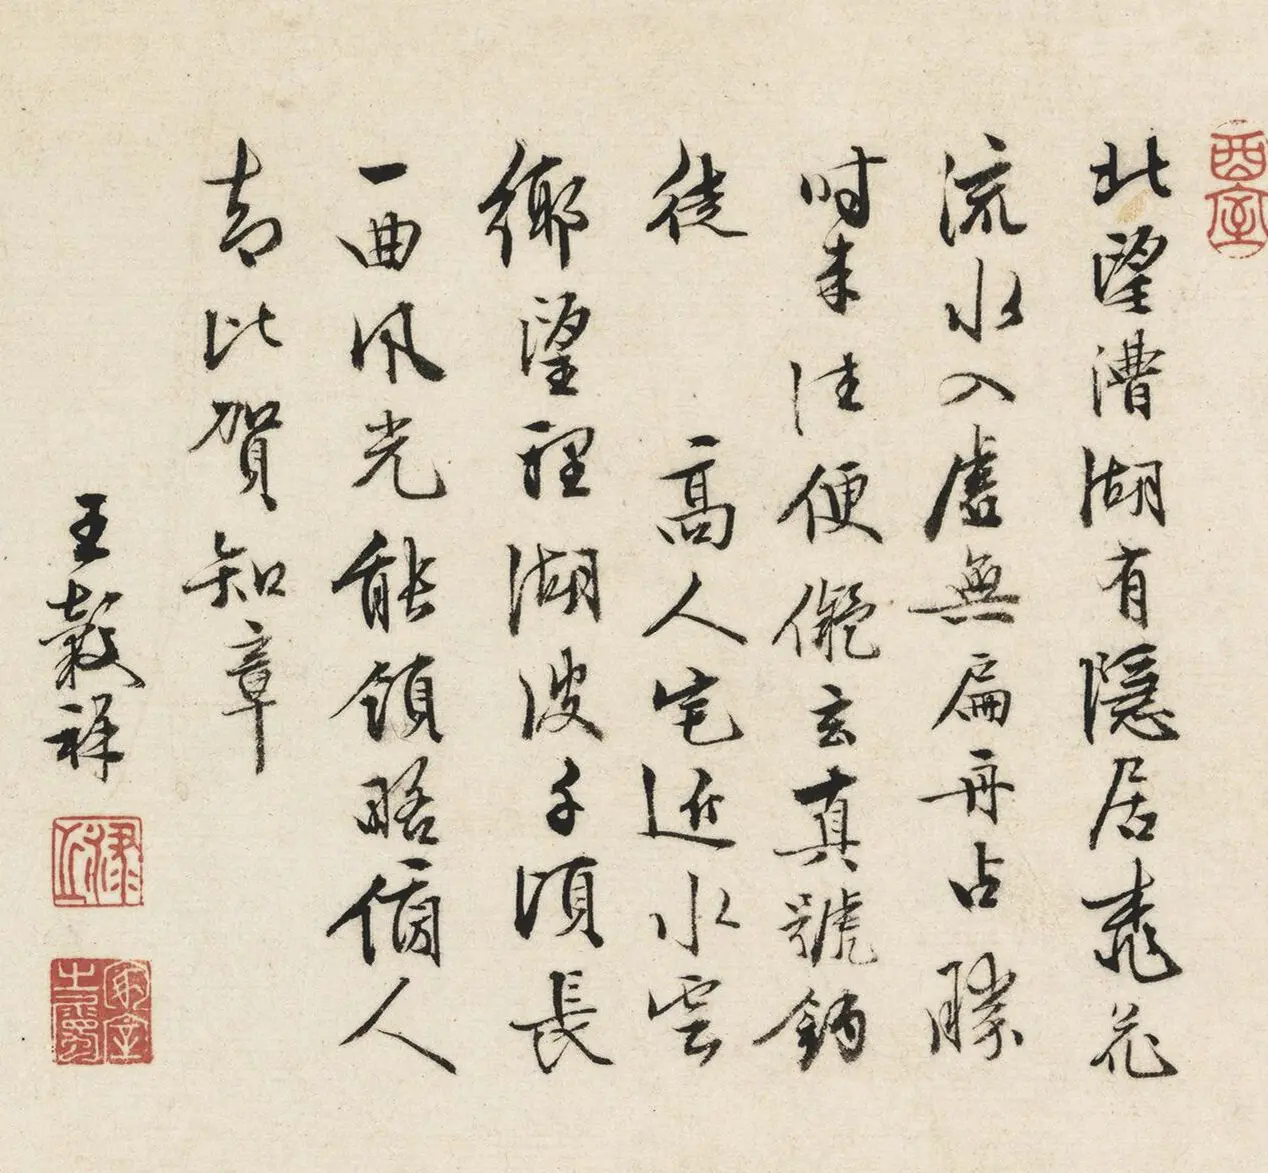 酉室
北望漕湖有隱居桃花
流水入虛無扁舟占勝
時来往便儗玄真號釣
徒 高人宅近水雲
鄉望裡湖波千頃長
一曲風光能領略個人
却比賀知章
王穀祥
祿之